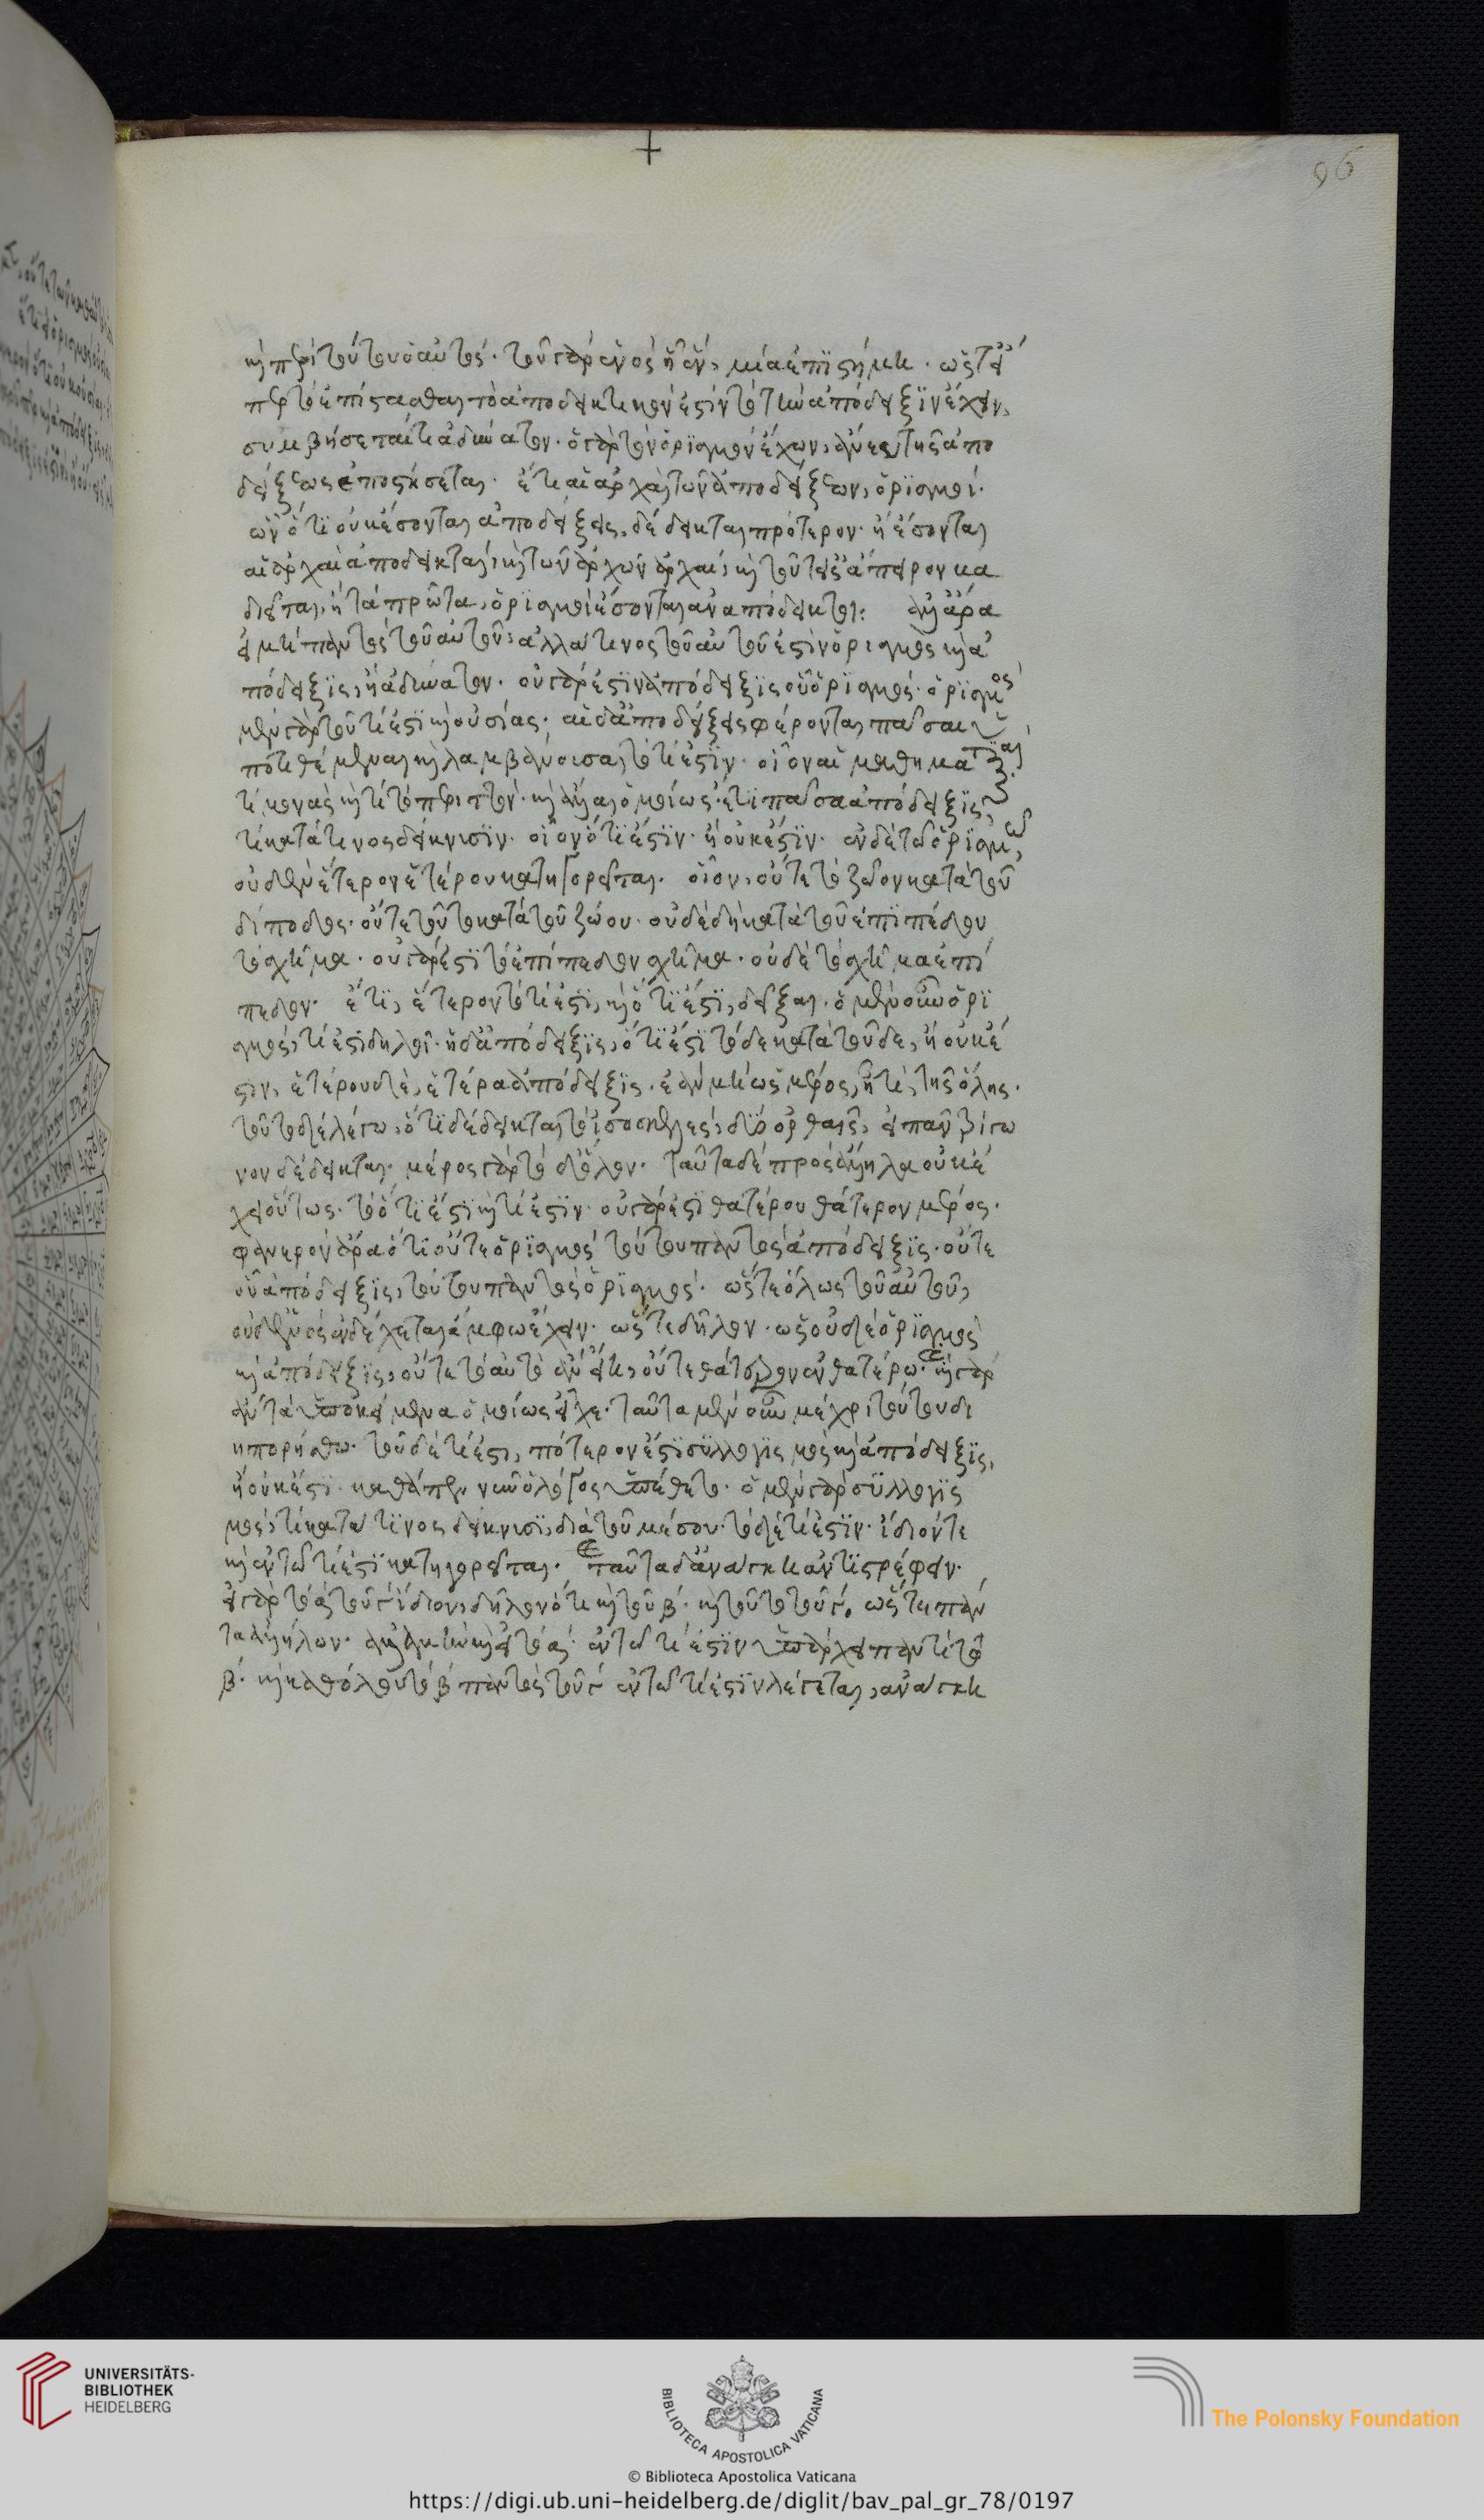 καὶ περὶ τούτου ὁ αὐτός. τοῦ γὰρ ἑνὸς ᾗ ἓν, μία ἐπιστήμη. ὥστ' εἴ
περ τὸ ἐπίστασθαι τὸ ἀποδεικτικόν ἐστιν τὸ τὴν ἀπόδειξιν ἔχειν,
συμβήσεταί τι ἀδύνατον. ὁ γὰρ τὸν ὁρισμὸν ἔχων, ἄνευ τῆς ἀπο
δείξεως ἐπιστήσεται. ἔτι αἱ ἀρχαὶ τῶν ἀποδείξεων, ὁρισμοί.
ὧν ὅτι οὐκ ἔσονται ἀποδείξεις, δέδεικται πρότερον. ἢ ἔσονται
αἱ ἀρχαὶ ἀποδεικταί, καὶ τῶν ἀρχῶν ἀρχαί, καὶ τοῦτ' εἰς ἄπειρον βα
διεῖται, ἢ τὰ πρῶτα, ὁρισμοὶ ἔσονται ἀναπόδεικτοι: ἀλλ' ἆρα
εἰ μὴ παντὸς τοῦ αὐτοῦ, ἀλλά τινος τοῦ αὐτοῦ ἐστὶν ὁρισμὸς καὶ ἀ
πόδειξις, ἢ ἀδύνατον. οὐ γάρ ἐστιν ἀπόδειξις οὗ ὁρισμός. ὁρισμὸς
μὲν γὰρ τοῦ τί ἐστι καὶ οὐσίας. αἱ δ' ἀποδείξεις φαίνονται πᾶσαι ὑ
ποτιθέμεναι καὶ λαμβάνουσαι τὸ τί ἐστιν. οἷον αἱ μαθηματικαὶ
τί μονὰς καὶ τί τὸ περιττόν. καὶ αἱ ἄλλαι ὁμοίως. ἔτι πᾶσα ἀπόδειξις,
τὶ κατά τινος δείκνυσιν. οἷον ὅτι ἔστιν. ἢ οὐκ ἔστιν. ἐν δὲ τῷ ὁρισμῷ,
οὐδὲν ἕτερον ἑτέρου κατηγορεῖται. οἷον, οὔτε τὸ ζῷον κατὰ τοῦ
δίποδος. οὔτε τοῦτο κατὰ τοῦ ζώου. οὐδὲ δὴ κατὰ τοῦ ἐπιπέδου
τὸ σχῆμα. οὐ γάρ ἐστι τὸ ἐπίπεδον σχῆμα. οὐδὲ τὸ σχῆμα ἐπί
πεδον. ἔτι, ἕτερον τὸ τί ἐστι, καὶ ὅτι ἔστι, δεῖξαι. ὁ μὲν οὖν ὁρι
σμός, τί ἐστι δηλοῖ. ἡ δ' ἀπόδειξις, ὅτι ἔστι τόδε κατὰ τοῦδε, ἢ οὐκ ἔ
στιν, ἑτέρου δὲ, ἑτέρα ἀπόδειξις. ἐὰν μὴ ὡς μέρος, ᾖ τι, τῆς ὅλης.
τοῦτο δὲ λέγω, ὅτι δέδεικται τὸ ἰσοσκελές, δύο ὀρθαῖς, εἰ πᾶν τρίγω
νον δέδεικται. μέρος γὰρ τὸ δ' ὅλον. ταῦτα δὲ πρὸς ἄλληλα οὐκ ἔ
χει οὕτως. τὸ ὅτι ἔστι καὶ τί ἐστιν. οὐ γάρ ἐστι θατέρου θάτερον μέρος.
φανερὸν ἄρα ὅτι οὔτε ὁρισμός τούτου παντὸς ἀπόδειξις. οὔτε
οὗ ἀπόδειξις, τούτου παντὸς ὁρισμός. ὥστε ὅλως τοῦ αὐτοῦ,
οὐδενὸς ἐνδέχεται ἄμφω ἔχειν. ὥστε δῆλον. ὡς οὐδὲ ὁρισμὸς
καὶ ἀπόδειξις, οὔτε τὸ αὐτὸ ἂν εἴη, οὔτε θάτερον ἐν θατέρῳ. καὶ γὰρ
ἂν τὰ ὑποκείμενα ὁμοίως εἶχε. ταῦτα μὲν οὖν μέχρι τούτου δι
ηπορήσθω. τοῦ δὲ τί ἐστι, πότερον ἔστι συλλογισμὸς καὶ ἀπόδειξις,
ἢ οὐκ ἔστι. καθάπερ νῦν ὁ λόγος ὑπέθετο. ὁ μὲν γὰρ συλλογις
μός, τὶ κατά τινος δείκνυσι, διὰ τοῦ μέσου. τὸ δὲ τί ἐστιν. ἴδιόν τε
καὶ ἐν τῷ τί ἐστι κατηγορεῖται. ταῦτα δ' ἀνάγκη ἀντιστρέφειν.
εἰ γὰρ τὸ α τοῦ γ ἴδιον, δῆλον ὅτι καὶ τοῦ β. καὶ τοῦτο τοῦ γ. ὥστε πάν
τα ἀλλήλων. ἀλλὰ μὴν καὶ εἰ τὸ α. ἐν τῷ τί ἐστιν ὑπάρχει παντὶ τῷ
β. καὶ καθόλου τὸ β παντὸς τοῦ γ ἐν τῷ τί ἐστιν λέγεται, ἀνάγκη
96
UNIVERSITÄTS-
BIBLIOTHEK
HEIDELBERG
BIBLIOTECA APOSTOLICA VATICANA
The Polonsky Foundation
© Biblioteca Apostolica Vaticana
https://digi.ub.uni-heidelberg.de/diglit/bav_pal_gr_78/0197